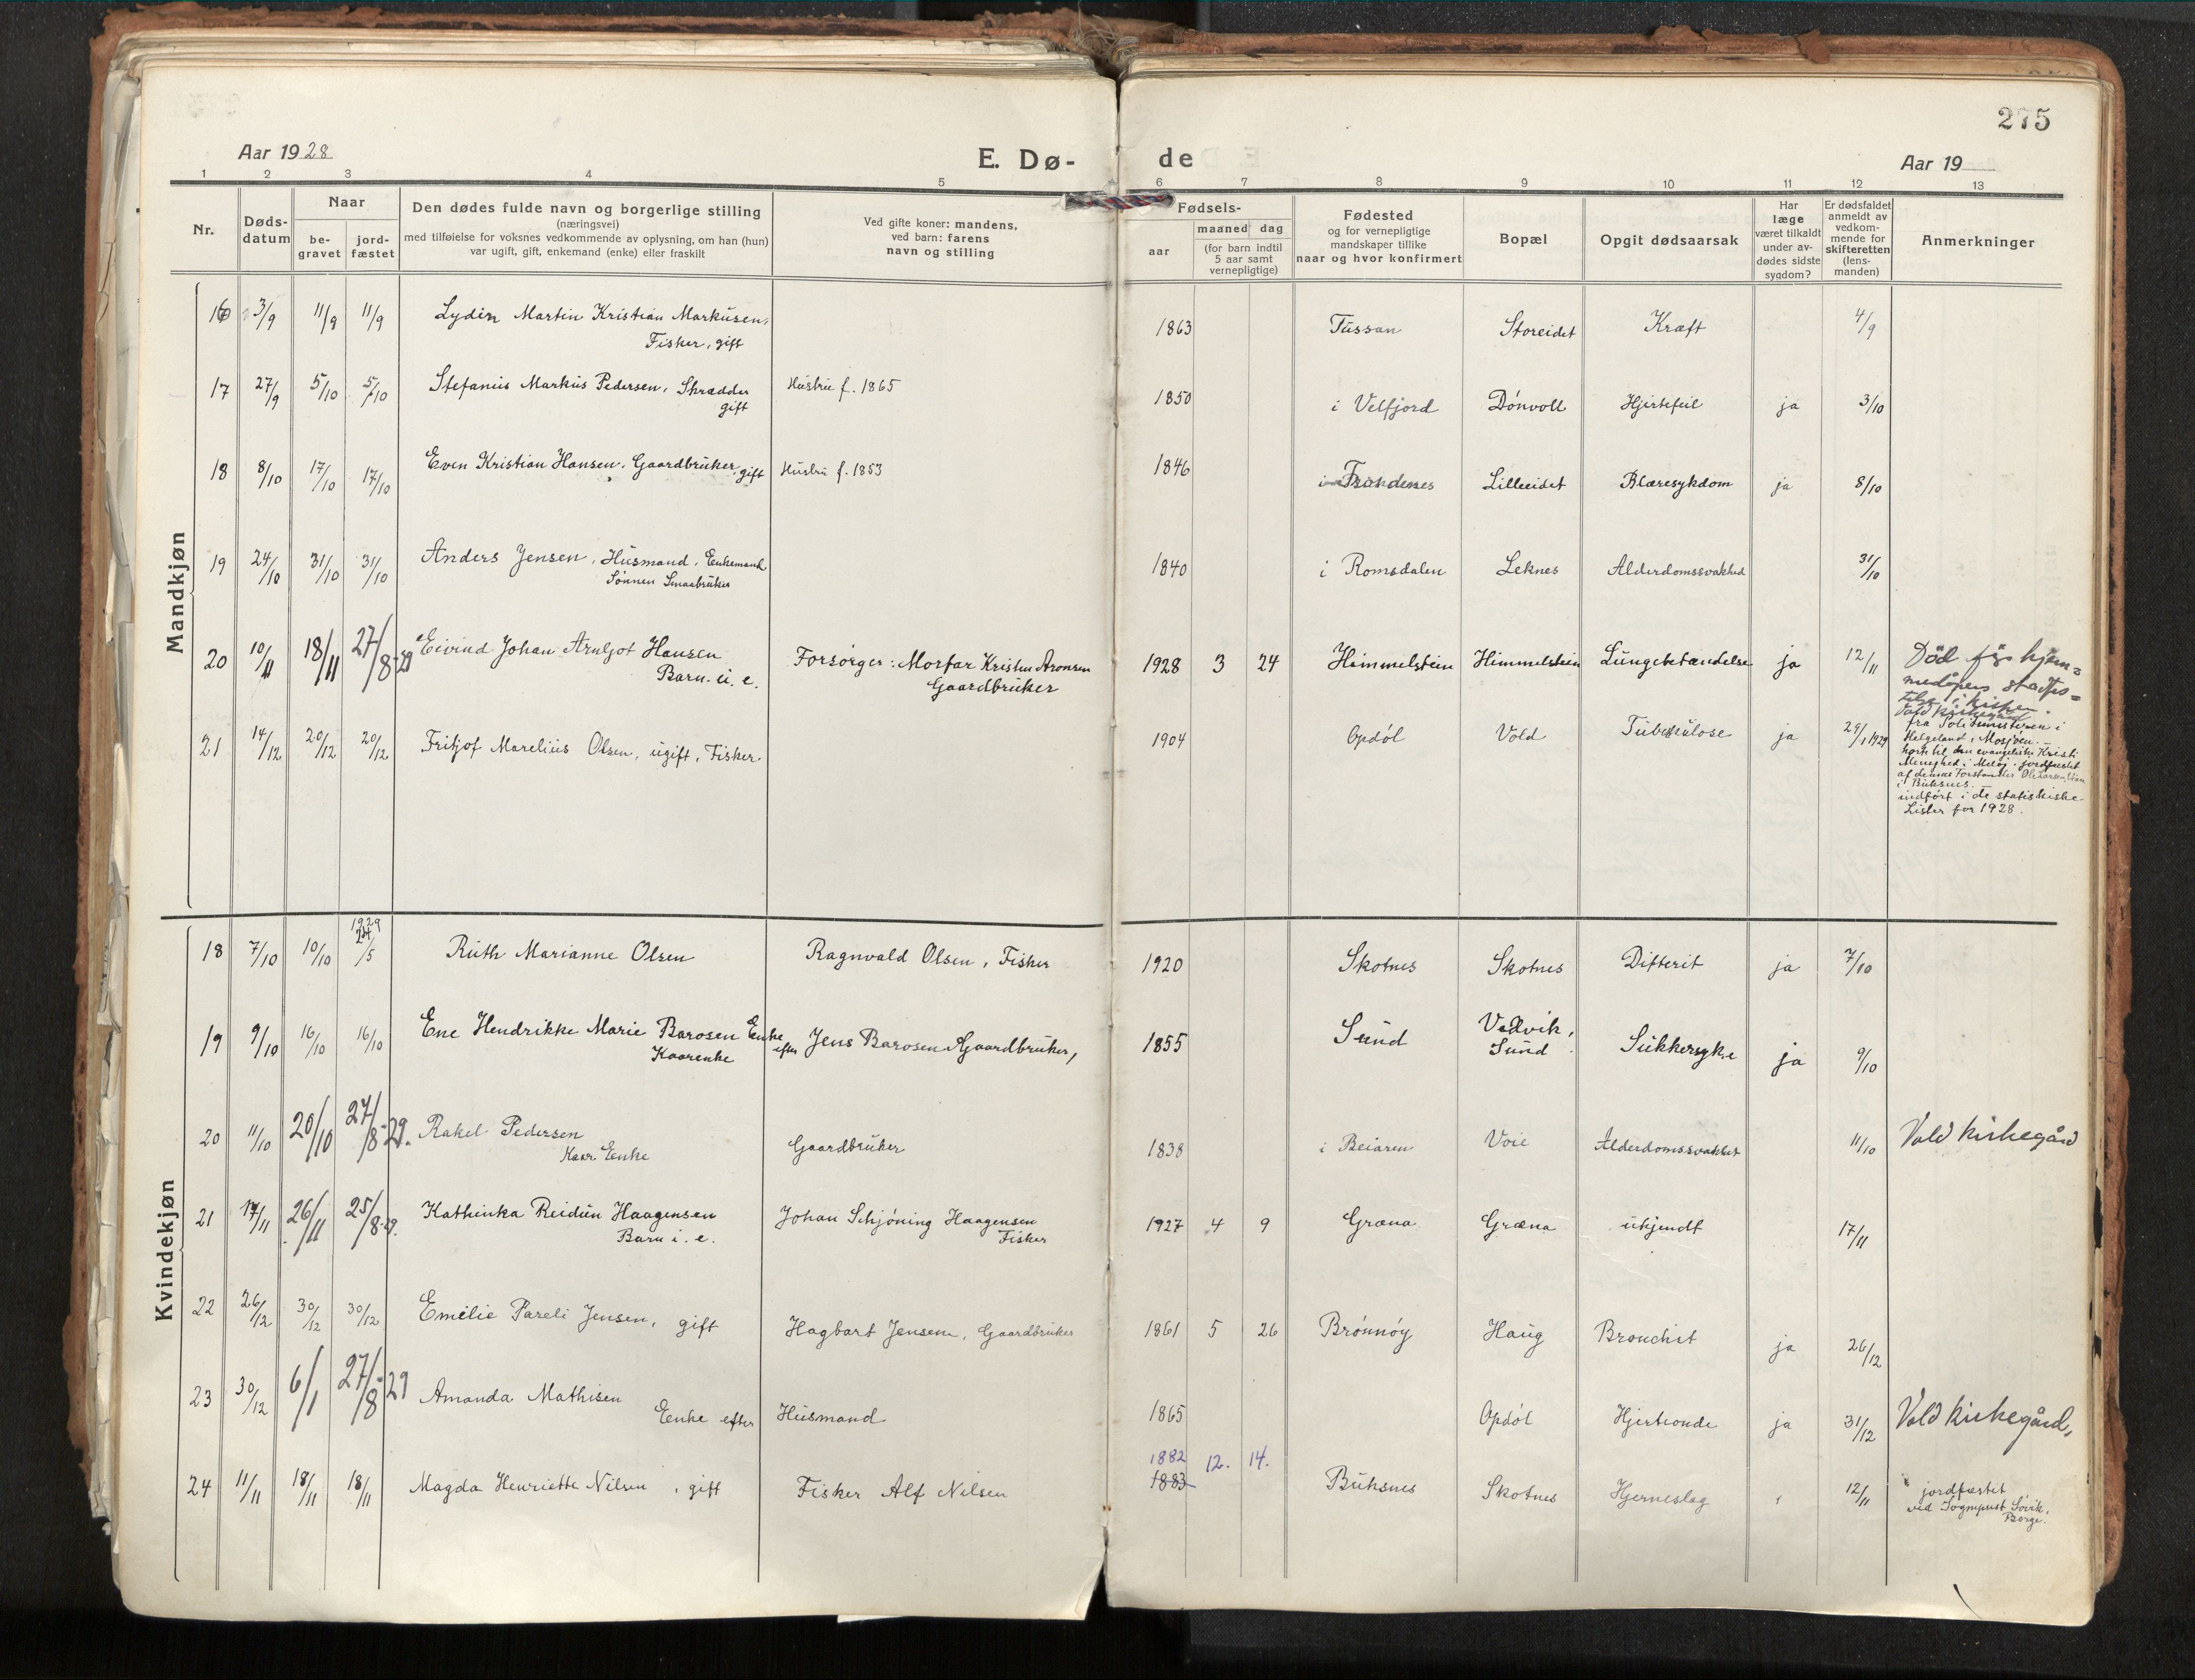 275
Aar 1928
E. Dø-
de
Aar 19
1 2 3 4 5 6 7 8 9 10 11 12 13
Nr.
Døds-
datum
Naar
be-
gravet
jord-
fæstet
Den dødes fulde navn og borgerlige stilling
(næringsvei)
med tilføielse for voksnes vedkommende av oplysning, om han (hun)
var ugift, gift, enkemand (enke) eller fraskilt
Ved gifte koner: mandens,
ved barn: farens
navn og stilling
Fødsels-
aar
maaned dag
(for barn indtil
5 aar samt
vernepligtige)
Fødested
og for vernepligtige
mandskaper tillike
naar og hvor konfirmert
Bopæl
Opgit dødsaarsak
Har
læge
været tilkaldt
under av-
dødes sidste
sygdom?
Er dødsfaldet
anmeldt av
vedkom-
mende for
skifteretten
(lens-
manden)
Anmerkninger
Mandkjøn
16 3/9 11/9 11/9 Lydin Martin Kristian Markusen, 1863 Tussan Storeidet Kræft 4/9
Fisker, gift
17 27/9 5/10 5/10 Stefanus Markus Pedersen, Skrædder Hustru f. 1865 1850 i Velfjord Dønvoll Hjertefeil ja 3/10
gift
18 8/10 17/10 17/10 Even Kristian Hansen, Gaardbruker, gift Hustru f. 1853 1846 i Lilleeidet Blæresykdom ja 8/10
19 24/10 31/10 31/10 Anders Jensen, Husmand, Enkemand 1840 i Romsdalen Leknes Alderdomssvakhed 31/10
Sønnen Smaabruker
20 10/11 18/11 27/8-29 Eivind Johan Arnljot Hansen Forsørger: Morfar Kristen Aronsen 1928 3 24 Himmelstein Himmelstein Lungebetændelse ja 12/11 Død før hjem=
Barn u. e. Gaardbruker
medåpens stadfes=
telse i kirken.
Vold kirkegård
21 14/12 20/12 20/12 Fritjof Marelius Olsen, ugift, Fisker 1904 Opdøl Vold Tuberkulose ja 29/1 1929 fra Politimesteren i
Helgeland, Mosjøen. –
hørte til den evangeliske Kristi
Menighed i Meløy. jordfæstet
af dennes Forstander Ole
i Buksnes. –
indført i de statistiske
Lister for 1928.
Kvindekjøn
1929
18 7/10 10/10 24/5 Ruth Marianne Olsen Ragnvald Olsen, Fisker 1920 Skotnes Skotnes Difterit ja 7/10
19 9/10 16/10 16/10 Ene Hendrikke Marie Barosen Enke efter Jens Barosen Gaardbruker, 1855 Sund Vedvik, Sukkersyke ja 9/10
Kaarenke Sund
20 11/10 20/10 27/8-29. Rakel Pedersen Gaardbruker 1838 i Beiaren Voie Alderdomssvakhet 11/10 Vold kirkegård
Kaar Enke
21 17/11 26/11 25/8-29. Kathinka Reidun Haagensen Johan Schjøning Haagensen 1927 4 9 Græna Græna ukjendt 17/11
Barn i. e. Fisker
22 26/12 30/12 30/12 Emelie Pareli Jensen, gift Hagbart Jensen, Gaardbruker 1861 5 26 Brønnøy Haug Bronchit ja 26/12
23 30/12 6/1 27/8-29 Amanda Mathisen 1865 Opdøl Hjerteonde ja 31/12 Vold kirkegård,
Enke efter Husmand
1882 12. 14.
24 11/11 18/11 18/11 Magda Henriette Nilsen, gift Fisker Alf Nilsen 1883 Buksnes Skotnes Hjerneslag 12/11 jordfæstet
ved Sogneprest Søvik,
Borge.